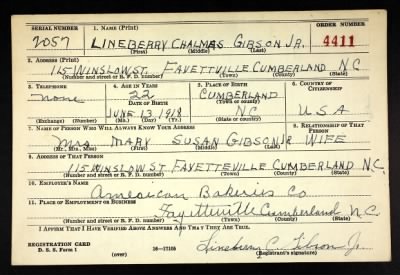 SERIAL NUMBER 1. NAME (Print) ORDER NUMBER
2057 LINEBERRY CHALMAS GIBSON JR. 4411
(First) (Middle) (Last)
2. ADDRESS (Print)
115 WINSLOW ST. FAYETTVILLE CUMBERLAND N.C.
(Number and street or R. F. D. number) (Town) (County) (State)
3. TELEPHONE 4. AGE IN YEARS 5. PLACE OF BIRTH 6. COUNTRY OF CITIZENSHIP
None 22 CUMBERLAND
DATE OF BIRTH (Town or county)
JUNE 13, 1918 NC USA
(Exchange) (Number) (Mo.) (Day) (Yr.) (State or country)
7. NAME OF PERSON WHO WILL ALWAYS KNOW YOUR ADDRESS 8. RELATIONSHIP OF THAT PERSON
Mrs. MARY SUSAN GIBSON JR WIFE
(Mr., Mrs., Miss) (First) (Middle) (Last)
9. ADDRESS OF THAT PERSON
115 WINSLOW ST FAYETTEVILLE CUMBERLAND N.C.
(Number and street or R. F. D. number) (Town) (County) (State)
10. EMPLOYER'S NAME
American Bakeries Co
11. PLACE OF EMPLOYMENT OR BUSINESS
Fayetteville Cumberland N.C.
(Number and street or R. F. D. number) (Town) (County) (State)
I AFFIRM THAT I HAVE VERIFIED ABOVE ANSWERS AND THAT THEY ARE TRUE.
REGISTRATION CARD
D. S. S. Form 1 (over) 16-17105 Lineberry C. Gibson Jr.
(Registrant's signature)